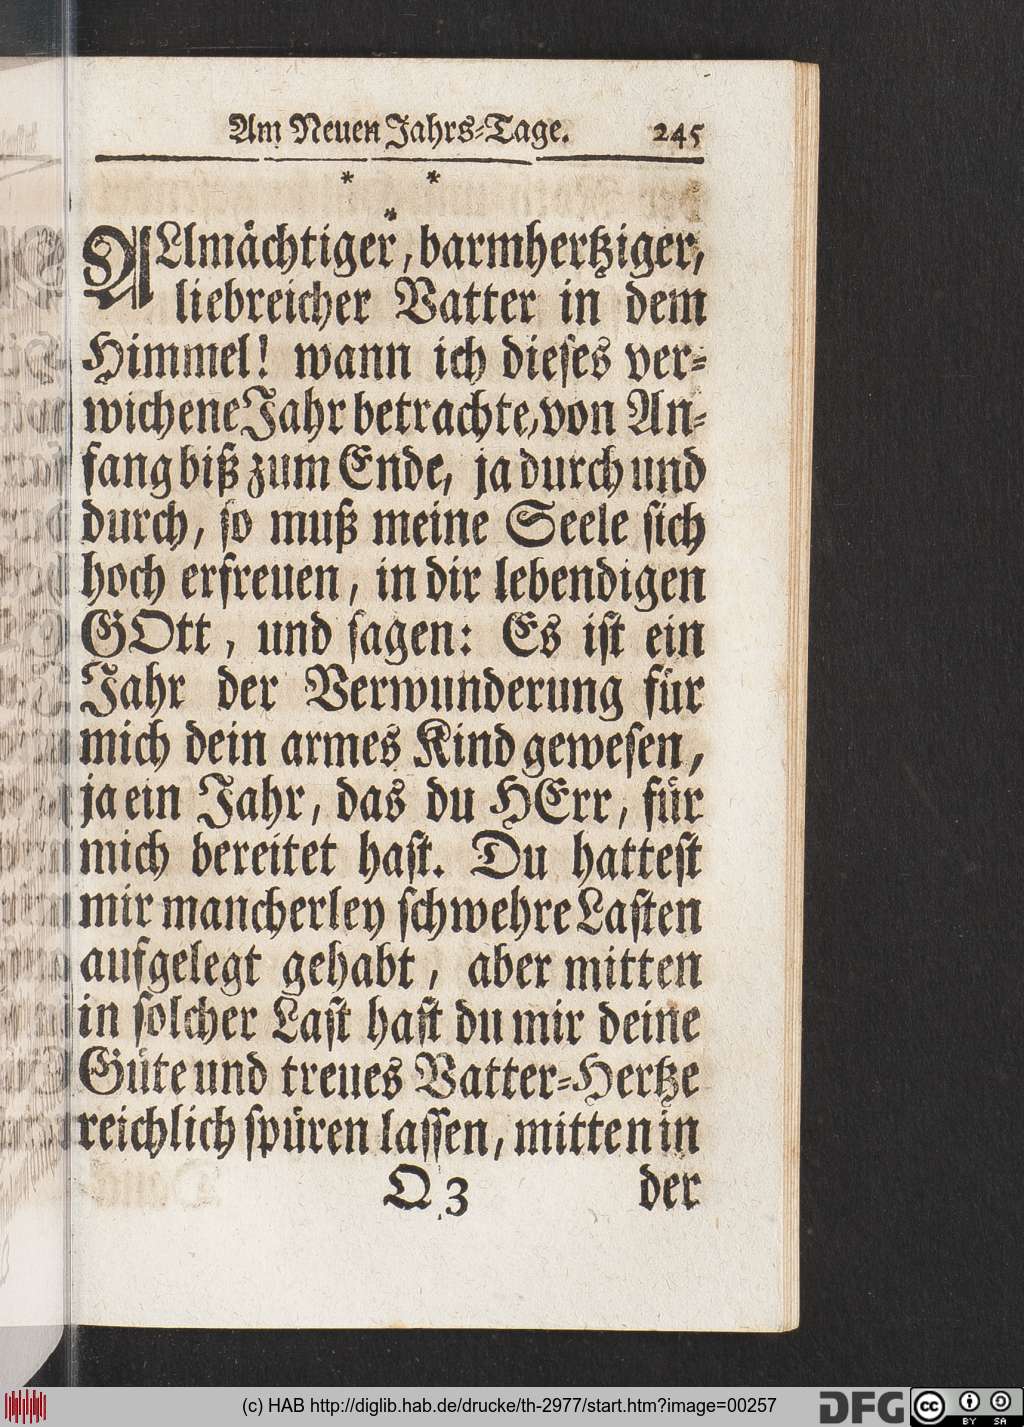 Am Neuen Jahrs-Tage. 245
* *
*
ALlmächtiger, barmhertziger,
liebreicher Vatter in dem
Himmel! wann ich dieses ver-
wichene Jahr betrachte, von An-
fang biß zum Ende, ja durch und
durch, so muß meine Seele sich
hoch erfreuen, in dir lebendigen
GOtt, und sagen: Es ist ein
Jahr der Verwunderung für
mich dein armes Kind gewesen,
ja ein Jahr, das du HErr, für
mich bereitet hast. Du hattest
mir mancherley schwehre Lasten
aufgelegt gehabt, aber mitten
in solcher Last hast du mir deine
Güte und treues Vatter-Hertze
reichlich spüren lassen, mitten in
Q 3 der
(c) HAB http://diglib.hab.de/drucke/th-2977/start.htm?image=00257
DFG cc BY SA